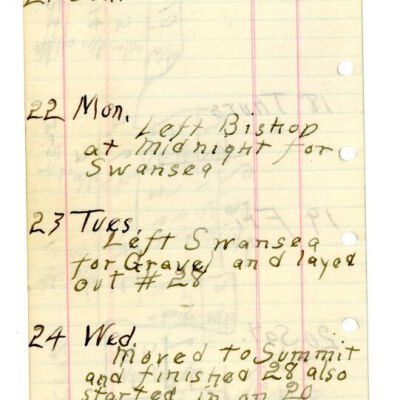 21 Sun.
22 Mon.
Left Bishop
at midnight for
Swansea
23 Tues.
Left Swansea
for Gravel and layed
out # 28
24 Wed.
Moved to Summit
and finished 28 also
started in on 20